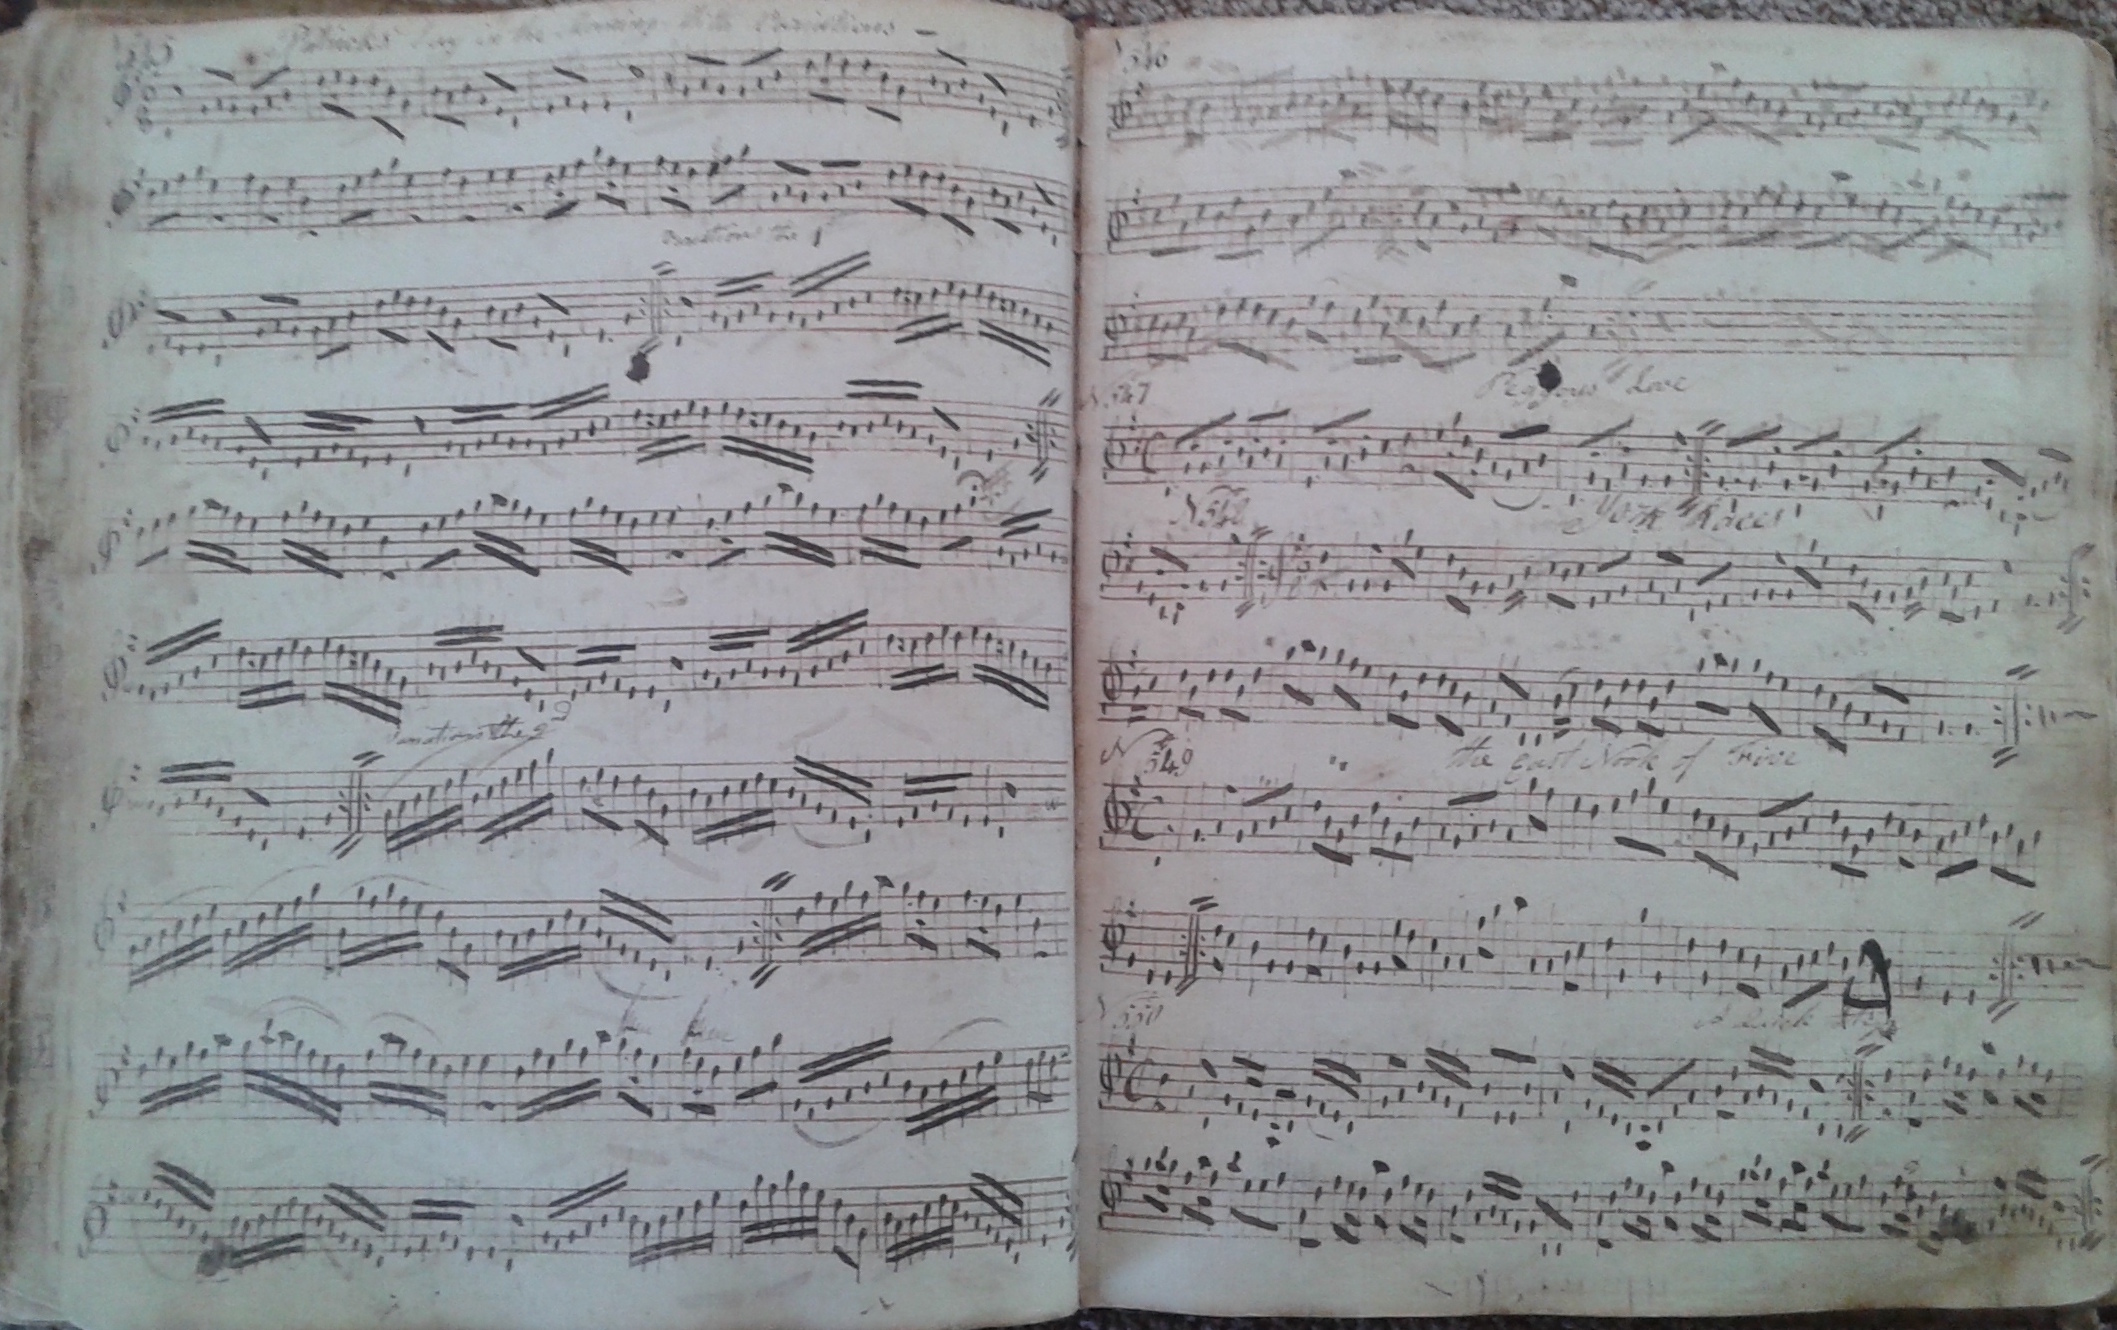 545 Patricks Day in the Morning With Variations
Variation the 1
Variation the 2d
546
N 547 Love
N 548 York Races
N 549 the East Nook of Fife
N 550